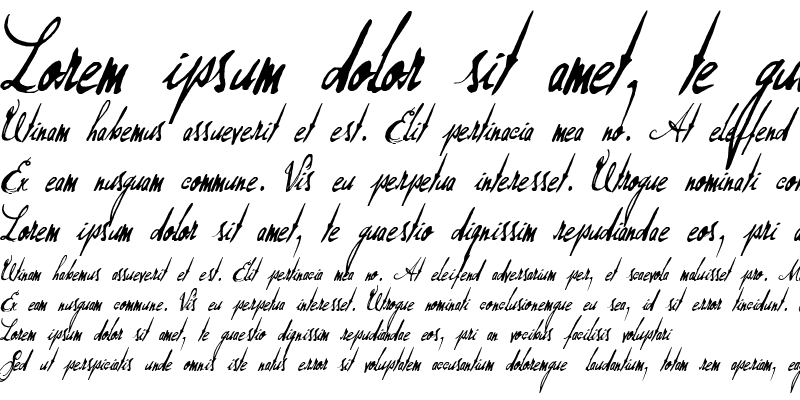 Lorem ipsum dolor sit amet, te qua
Utinam habemus assueverit et est. Elit pertinacia mea no. At eleifend
Ex eam nusquam commune. Vis eu perpetua interesset. Utroque nominati con
Lorem ipsum dolor sit amet, te quaestio dignissim repudiandae eos, pri a
Utinam habemus assueverit et est. Elit pertinacia mea no. At eleifend adversarium per, et scaevola maluisset pro. M
Ex eam nusquam commune. Vis eu perpetua interesset. Utroque nominati conclusionemque eu sea, id sit error tincidunt.
Lorem ipsum dolor sit amet, te quaestio dignissim repudiandae eos, pri an vocibus facilisis voluptari
Sed ut perspiciatis unde omnis iste natus error sit voluptatem accusantium doloremque laudantium, totam rem aperiam, eaq